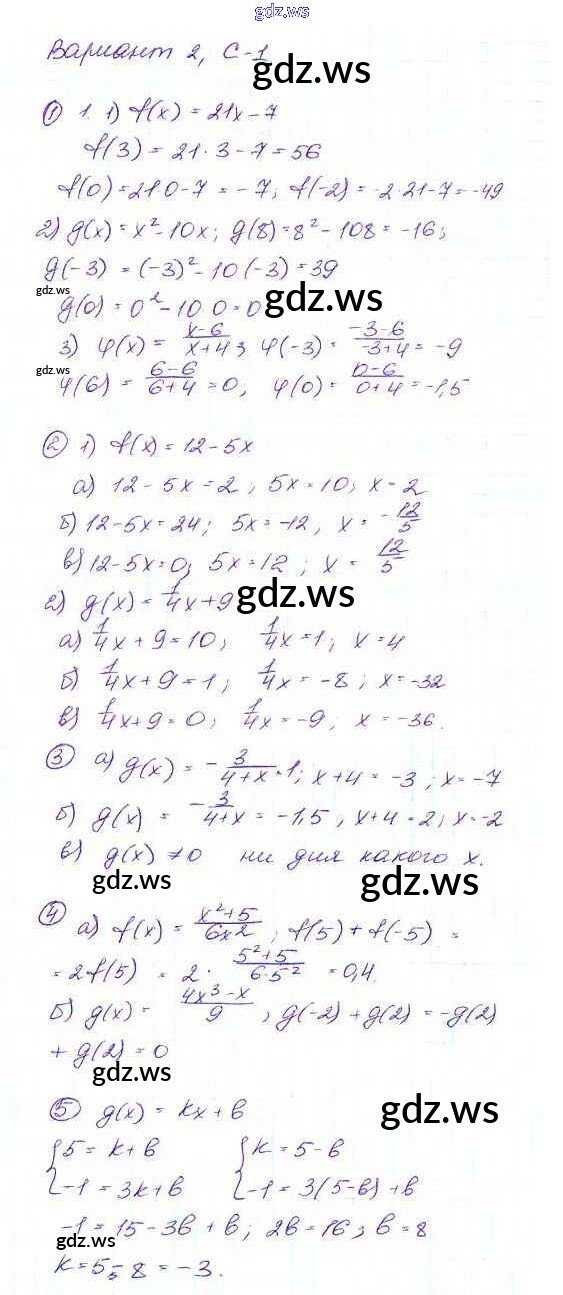 gdz.ws
Вариант 2, С-1
gdz.ws
① 1. 1) f(x) = 21x - 7
f(3) = 21·3 - 7 = 56
f(0) = 21·0 - 7 = -7; f(-2) = -2·21 - 7 = -49
2) g(x) = x² - 10x; g(8) = 8² - 108 = -16;
g(-3) = (-3)² - 10(-3) = 39
gdz.ws
gdz.ws
g(0) = 0² - 10·0 = 0
3) φ(x) = (x-6)/(x+4); φ(-3) = (-3-6)/(-3+4) = -9
gdz.ws
φ(6) = (6-6)/(6+4) = 0, φ(0) = (0-6)/(0+4) = -1,5
② 1) f(x) = 12 - 5x
а) 12 - 5x = 2; 5x = 10; x = 2
б) 12 - 5x = 24; 5x = -12, x = -12/5
в) 12 - 5x = 0; 5x = 12; x = 12/5
2) g(x) = 1/4x + 9
gdz.ws
а) 1/4x + 9 = 10; 1/4x = 1; x = 4
б) 1/4x + 9 = 1; 1/4x = -8; x = -32
в) 1/4x + 9 = 0; 1/4x = -9; x = -36.
③ а) g(x) = -3/(4+x) = 1; x + 4 = -3; x = -7
б) g(x) = -3/(4+x) = -1,5, x + 4 = 2; x = -2
в) g(x) ≠ 0 ни для какого x.
gdz.ws
gdz.ws
④ а) f(x) = (x²+5)/(6x²); f(5) + f(-5) =
= 2f(5) = 2·(5²+5)/(6·5²) = 0,4.
б) g(x) = (4x³-x)/9, g(-2) + g(2) = -g(2)
+ g(2) = 0
gdz.ws
⑤ g(x) = kx + b
gdz.ws
{5 = k + b {k = 5 - b
{-1 = 3k + b {-1 = 3(5-b) + b
-1 = 15 - 3b + b; 2b = 16; b = 8
gdz.ws
k = 5 - 8 = -3.